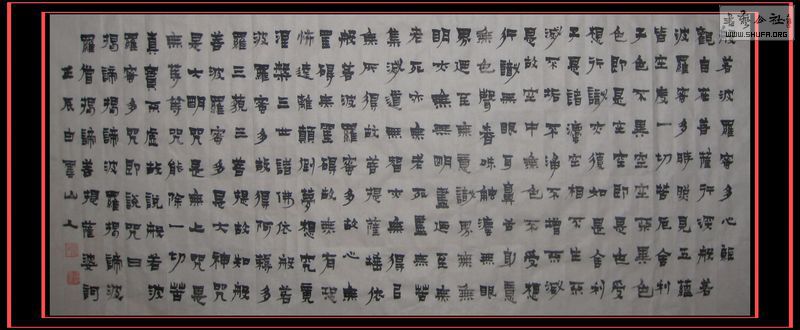 般若波羅蜜多心經
觀自在菩薩行深般若
波羅蜜多時照見五蘊
皆空度一切苦厄舍利
子色不異空空不異色
色即是空空即是色受
想行識亦復如是舍利
子是諸灋空相不生不
滅不垢不淨不增不減
是故空中無色無受想
行識無眼耳鼻舌身意
無色聲香味觸灋無眼
界乃至無意識界無無
明亦無無明盡乃至無
老死亦無老死盡無苦
集滅道無智亦無得以
無所得故菩提薩埵依
般若波羅蜜多故心無
罣礙無罣礙故無有恐
怖遠離顛倒夢想究竟
涅槃三世諸佛依般若
波羅蜜多故得阿耨多
羅三藐三菩提故知般
若波羅蜜多是大神咒
是大明咒是無上咒是
無等等咒能除一切苦
真實不虛故說般若波
羅蜜多咒即說咒曰
揭諦揭諦波羅揭諦波
羅僧揭諦菩提薩婆訶
壬辰白雲山人
WWW.SHUFA.ORG